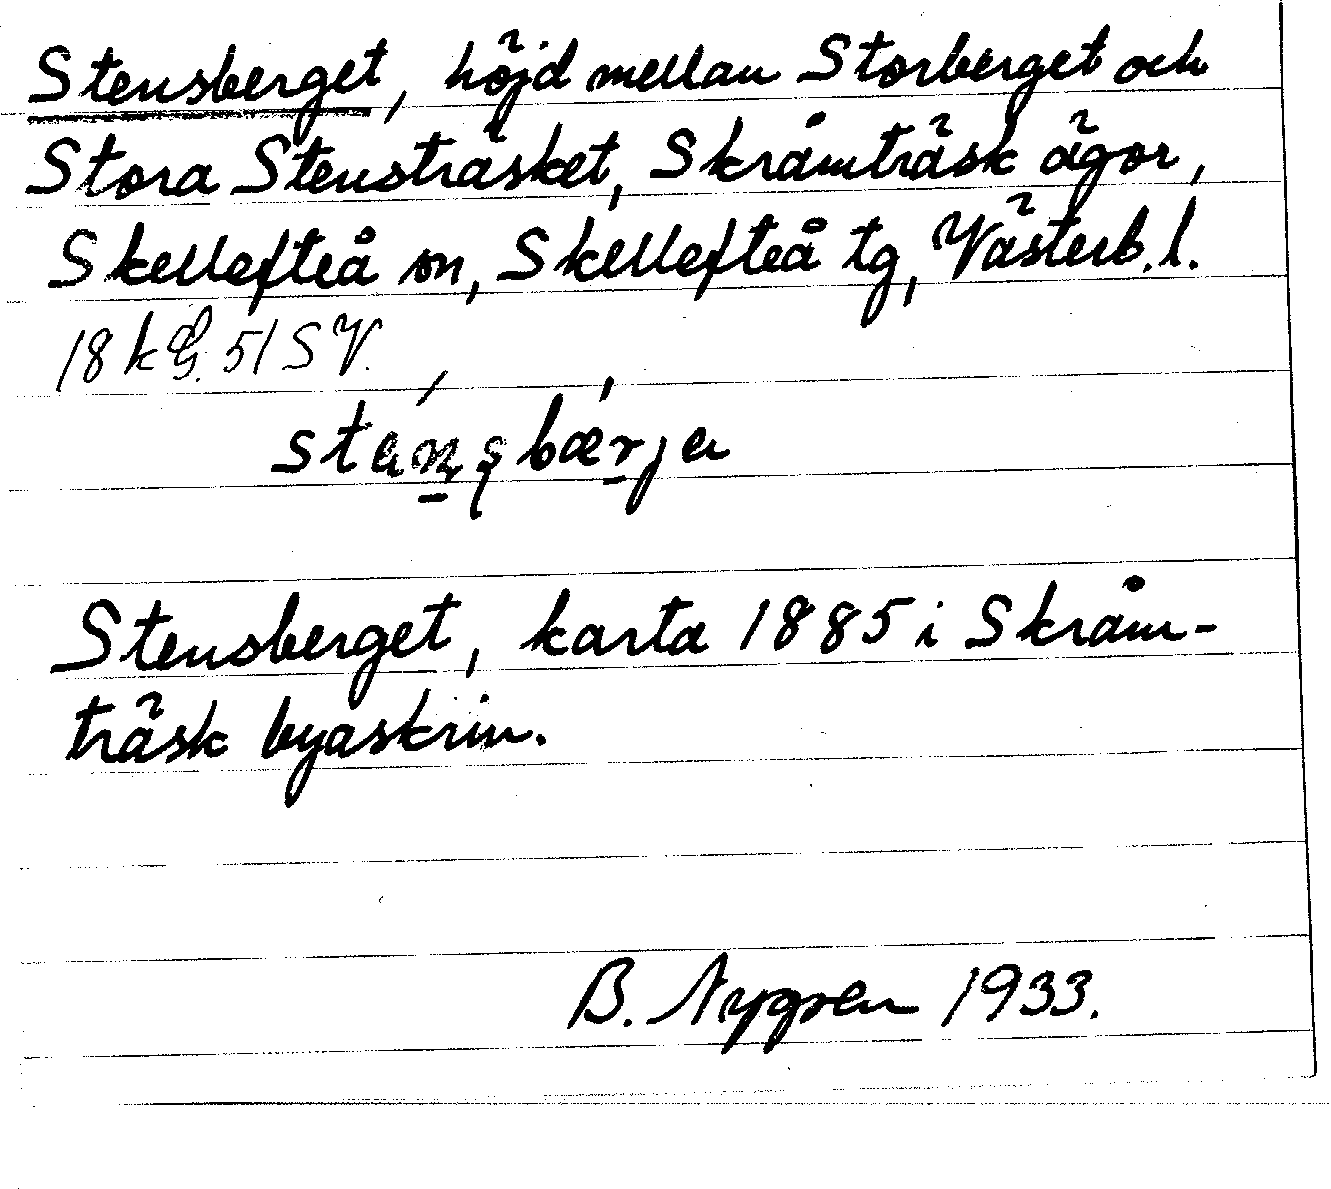 Stensberget, höjd mellan Storberget och
Stora Stensträsket, Skråmträsk ägor,
Skellefteå sn, Skellefteå tg, Västerb. l.
51 SV.
Stensberget, karta 1885 i Skråm-
träsk byaskrin.
B. Nygren 1933.